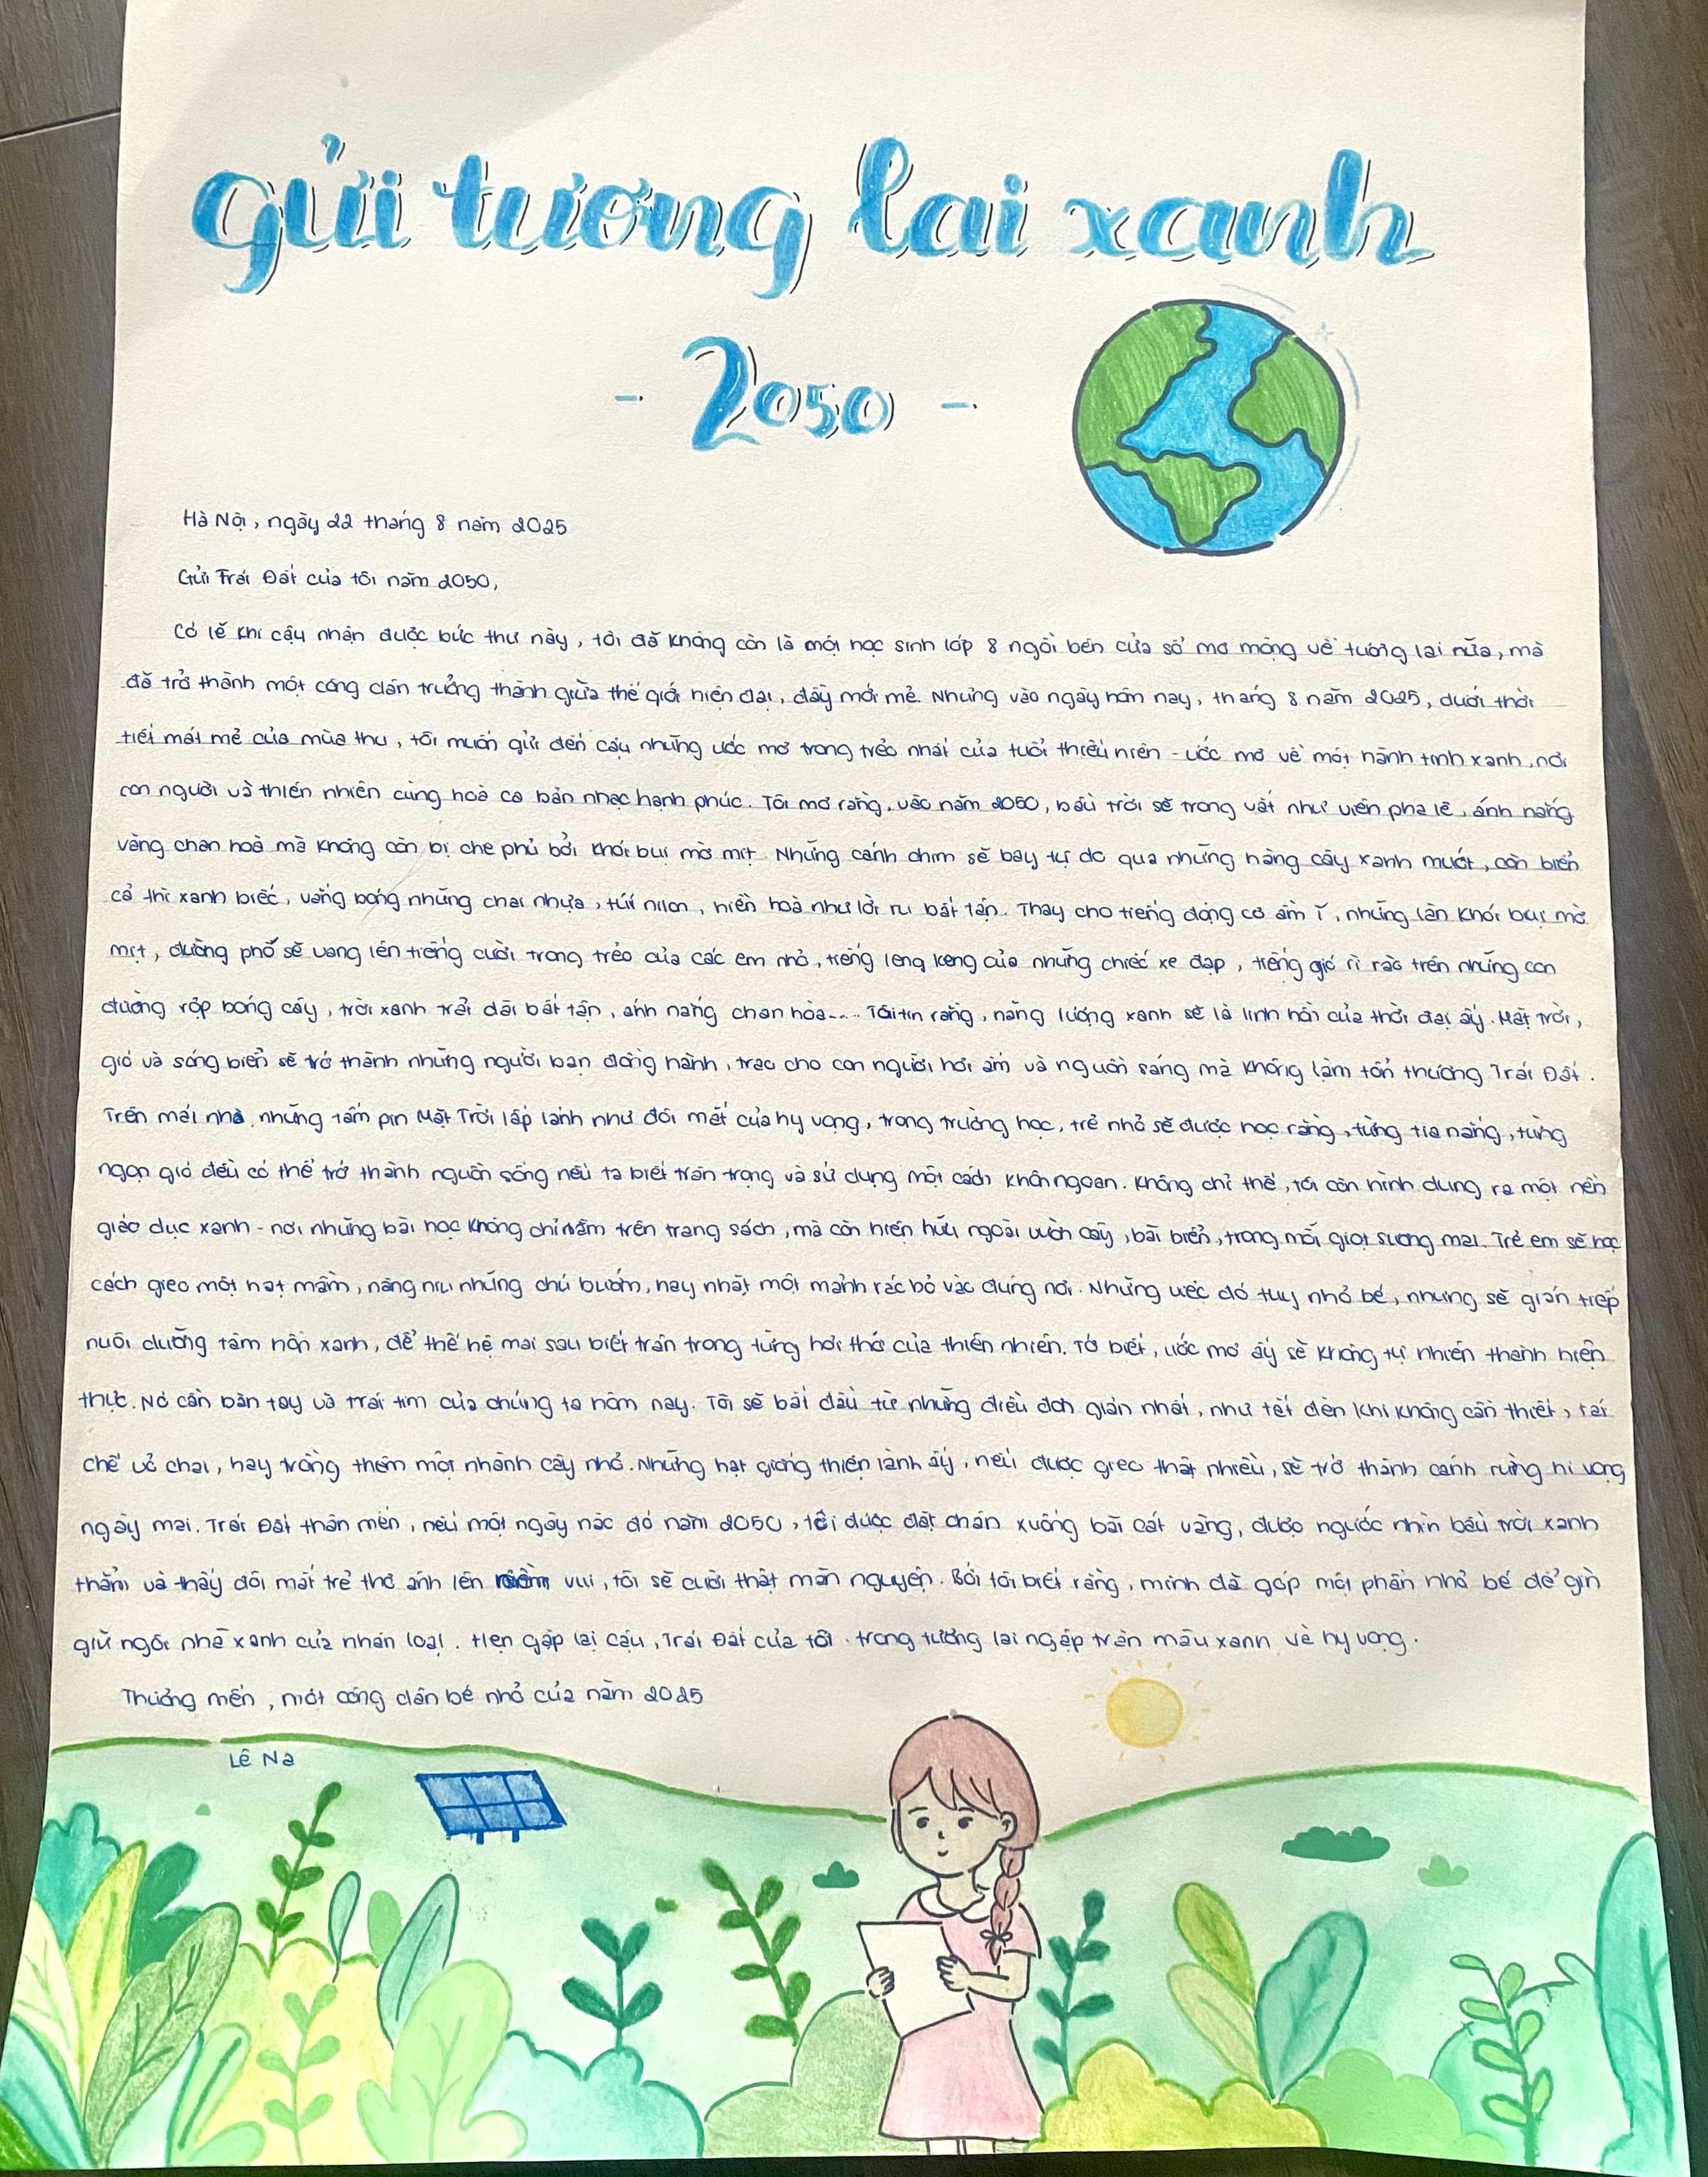 gửi tương lai xanh
- 2050 -
Hà Nội, ngày 22 tháng 8 năm 2025
Gửi Trái Đất của tôi năm 2050,
Có lẽ khi cậu nhận được bức thư này, tôi đã không còn là một học sinh lớp 8 ngồi bên cửa sổ mơ mộng về tương lai nữa, mà
đã trở thành một công dân trưởng thành giữa thế giới hiện đại, đầy mới mẻ. Nhưng vào ngày hôm nay, tháng 8 năm 2025, dưới thời
tiết mát mẻ của mùa thu, tôi muốn gửi đến cậu những ước mơ trong trẻo nhất của tuổi thiếu niên - ước mơ về một hành tinh xanh, nơi
con người và thiên nhiên cùng hoà ca bản nhạc hạnh phúc. Tôi mơ rằng, vào năm 2050, bầu trời sẽ trong vắt như viên pha lê, ánh nắng
vàng chan hoà mà không còn bị che phủ bởi khói bụi mờ mịt. Những cánh chim sẽ bay tự do qua những hàng cây xanh mướt, còn biển
cả thì xanh biếc, vắng bóng những chai nhựa, túi nilon, hiền hoà như lời ru bất tận. Thay cho tiếng động cơ ầm ĩ, những làn khói bụi mờ
mịt, đường phố sẽ vang lên tiếng cười trong trẻo của các em nhỏ, tiếng leng keng của những chiếc xe đạp, tiếng gió rì rào trên những con
đường rợp bóng cây, trời xanh trải dài bất tận, ánh nắng chan hòa.... Tôi tin rằng, năng lượng xanh sẽ là linh hồn của thời đại ấy. Mặt trời,
gió và sóng biển sẽ trở thành những người bạn đồng hành, trao cho con người hơi ấm và nguồn sáng mà không làm tổn thương Trái Đất.
Trên mái nhà, những tấm pin Mặt Trời lấp lánh như đôi mắt của hy vọng, trong trường học, trẻ nhỏ sẽ được học rằng, từng tia nắng, từng
ngọn gió đều có thể trở thành nguồn sống nếu ta biết trân trọng và sử dụng một cách khôn ngoan. Không chỉ thế, tôi còn hình dung ra một nền
giáo dục xanh - nơi những bài học không chỉ nằm trên trang sách, mà còn hiện hữu ngoài vườn cây, bãi biển, trong mỗi giọt sương mai. Trẻ em sẽ học
cách gieo một hạt mầm, nâng niu những chú bướm, hay nhặt một mảnh rác bỏ vào đúng nơi. Những việc đó tuy nhỏ bé, nhưng sẽ gián tiếp
nuôi dưỡng tâm hồn xanh, để thế hệ mai sau biết trân trọng từng hơi thở của thiên nhiên. Tớ biết, ước mơ ấy sẽ không tự nhiên thành hiện
thực. Nó cần bàn tay và trái tim của chúng ta hôm nay. Tôi sẽ bắt đầu từ những điều đơn giản nhất, như tắt đèn khi không cần thiết, tái
chế vỏ chai, hay trồng thêm một nhành cây nhỏ. Những hạt giống thiện lành ấy, nếu được gieo thật nhiều, sẽ trở thành cánh rừng hi vọng
ngày mai. Trái Đất thân mến, nếu một ngày nào đó năm 2050, tôi được đặt chân xuống bãi cát vàng, được ngước nhìn bầu trời xanh
thẳm và thấy đôi mắt trẻ thơ ánh lên niềm vui, tôi sẽ cười thật mãn nguyện. Bởi tôi biết rằng, mình đã góp một phần nhỏ bé để gìn
giữ ngôi nhà xanh của nhân loại. Hẹn gặp lại cậu, Trái Đất của tôi. trong tương lai ngập tràn màu xanh và hy vọng.
Thương mến, một công dân bé nhỏ của năm 2025
Lê Na